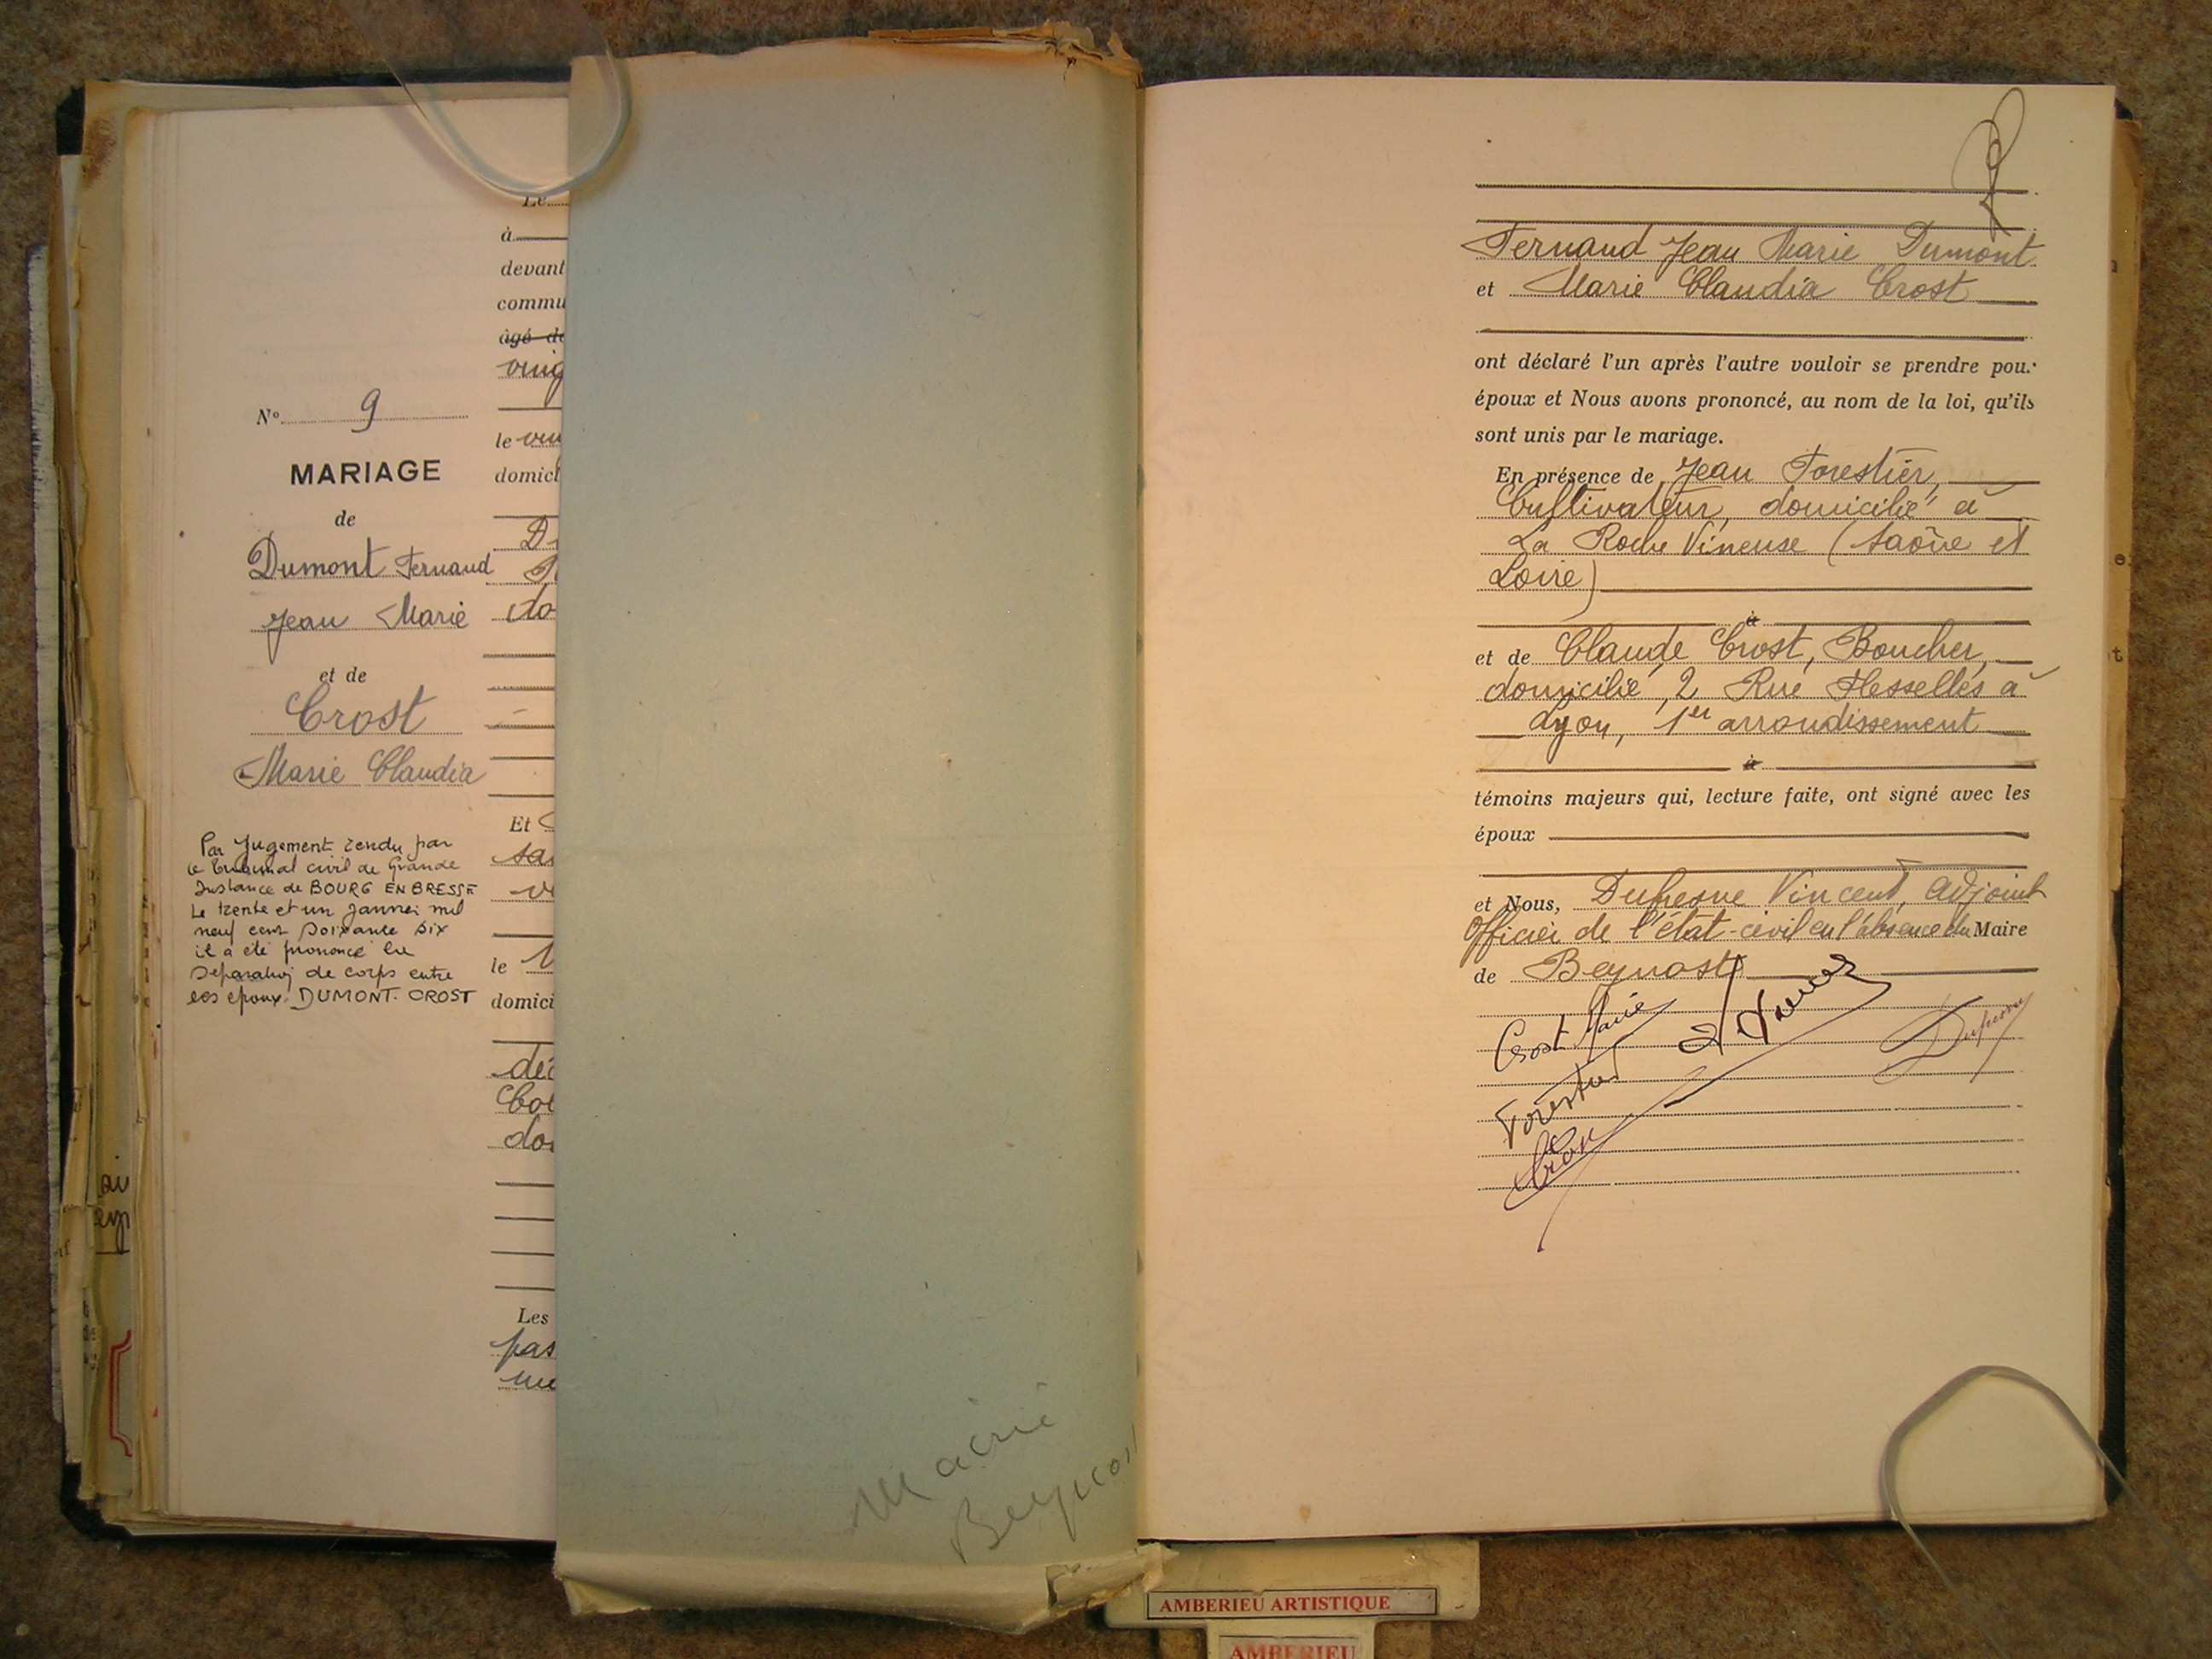 Le
à
devant
commu
âgé de
ving
N° 9
le
domici
MARIAGE
de
Dumont Fernand
Jean Marie
et de
Crost
Marie Claudia
Par Jugement rendu par
le Tribunal civil de Grande
Instance de BOURG EN BRESSE
Le trente et un Janvier mil
neuf cent Soixante Dix
il a été prononcé la
Séparation de corps entre
les époux DUMONT-CROST
Et
le
domici
déc
dom
Les
pas
Mairie
Beynost
Fernand Jean Marie Dumont
et Marie Claudia Crost
ont déclaré l'un après l'autre vouloir se prendre pour
époux et Nous avons prononcé, au nom de la loi, qu'ils
sont unis par le mariage.
En présence de Jean Forestier,
Cultivateur, domicilié à
La Roche Vineuse (Saône et
Loire)
à
et de Claude Crost, Boucher,
domicilié, 2 Rue Flesselles à
Lyon, 1er arrondissement
à
témoins majeurs qui, lecture faite, ont signé avec les
époux
et Nous, Dufresne Vincent, adjoint
Officier de l'état-civil en l'absence du Maire
de Beynost
Crost Marie
Dufresne
Forestier
Crost
AMBERIEU ARTISTIQUE
AMBERIEU